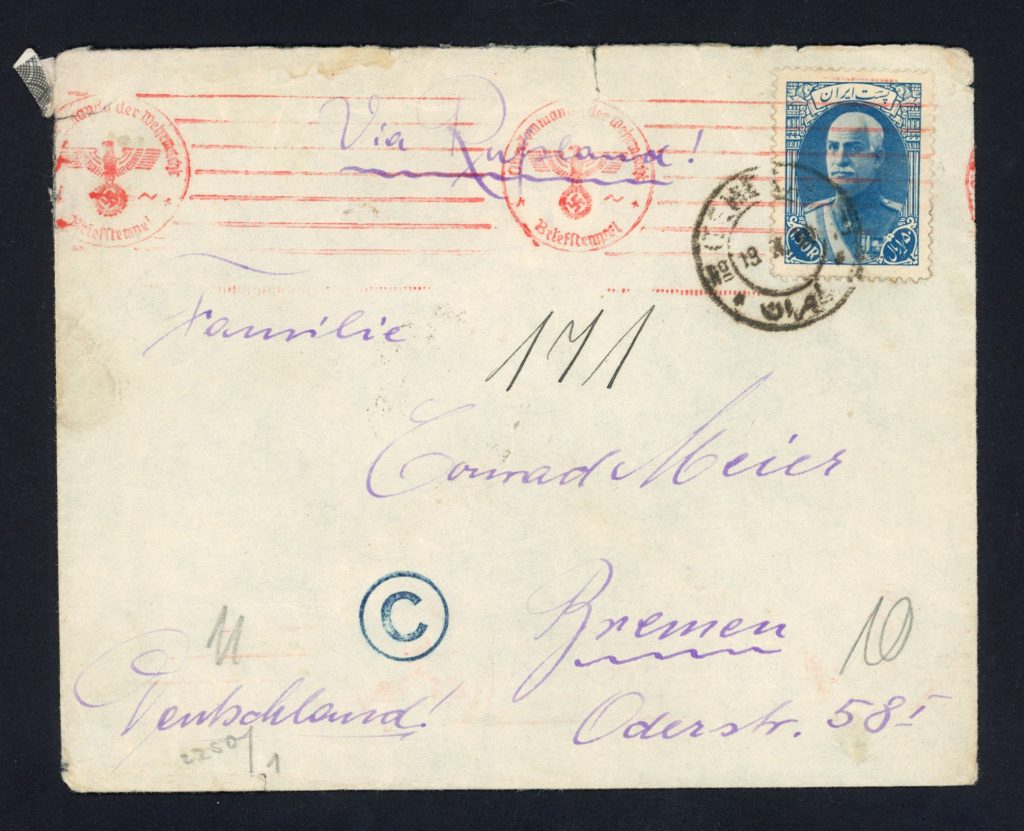 Via Rußland!
پست ایران
Oberkommando der Wehrmacht
Briefstempel
Oberkommando der Wehrmacht
Briefstempel
150R
ریال
19
Familie
171
Conrad Meier
C
Bremen
11
10
Deutschland!
Oderstr. 58 I
2250/1